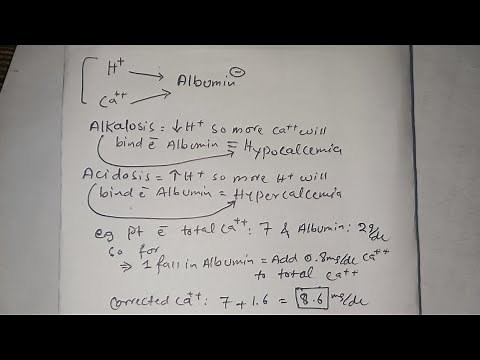 H⁺
Albumin⊖
Ca⁺⁺
Alkalosis = ↓H⁺ so more Ca⁺⁺ will
bind c̄ Albumin = Hypocalcemia
Acidosis = ↑H⁺ so more H⁺ will
bind c̄ Albumin = Hypercalcemia
eg pt c̄ total Ca⁺⁺: 7 & Albumin: 2g/dc
so for
⇒ 1 fall in Albumin = Add 0.8mg/dc Ca⁺⁺
to total Ca⁺⁺
Corrected Ca⁺⁺: 7 + 1.6 = 8.6 mg/dc